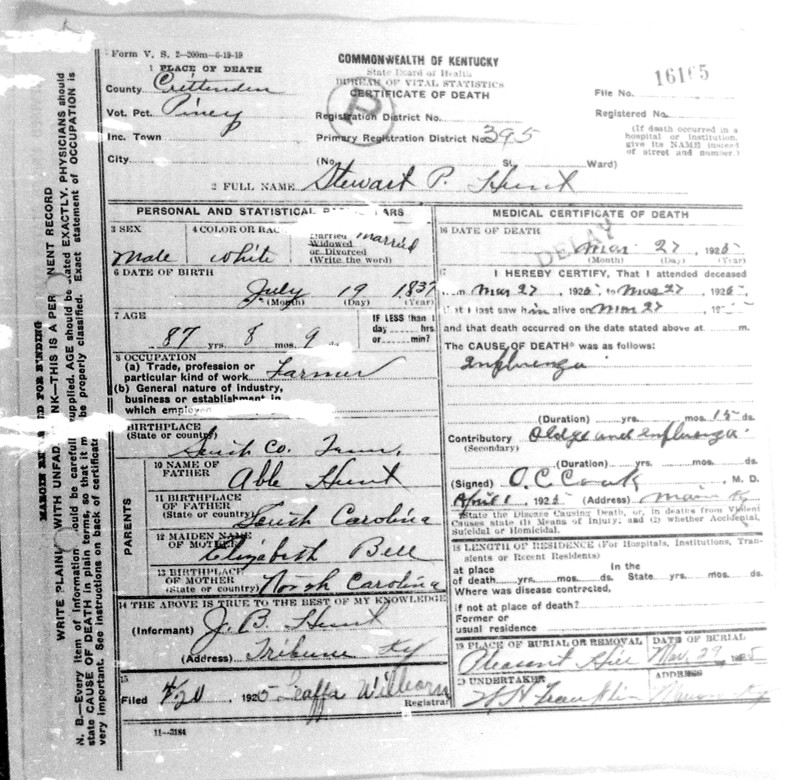 Form V. S. 2—200m—6-19-19
COMMONWEALTH OF KENTUCKY
State Board of Health
BUREAU OF VITAL STATISTICS
CERTIFICATE OF DEATH
1 PLACE OF DEATH
County Crittenden
Vot. Pct. Piney
Inc. Town
City
Registration District No.
Primary Registration District No. 395
(No. St. Ward)
File No. 16165
Registered No.
(If death occurred in a
hospital or institution,
give its NAME instead
of street and number.)
2 FULL NAME Stewart P. Hunt
PERSONAL AND STATISTICAL
3 SEX
Male
4 COLOR OR RACE
White
Married
Widowed
or Divorced
(Write the word)
Married
6 DATE OF BIRTH
July 19 1837
(Month) (Day) (Year)
7 AGE
87 yrs. 8 mos. 9 ds.
IF LESS than 1
day hrs.
or min?
8 OCCUPATION
(a) Trade, profession or
particular kind of work Farmer
(b) General nature of industry,
business or establishment in
which employed
BIRTHPLACE
(State or country)
Smith Co. Tenn.
PARENTS
10 NAME OF
FATHER Able Hunt
11 BIRTHPLACE
OF FATHER
(State or country) South Carolina
12 MAIDEN NAME
OF MOTHER Elizabeth Bell
13 BIRTHPLACE
OF MOTHER
(State or country) North Carolina
14 THE ABOVE IS TRUE TO THE BEST OF MY KNOWLEDGE
(Informant) J. B. Hunt
(Address) Tribune Ky
15
Filed 4/20 1925 Leaffa Wilborn
Registrar
11—3184
MEDICAL CERTIFICATE OF DEATH
16 DATE OF DEATH
DELAY
Mar 27, 1925
(Month) (Day) (Year)
17 I HEREBY CERTIFY, That I attended deceased
Mar 27, 1925, to Mar 27, 1925,
that I last saw him alive on Mar 27, 19
and that death occurred on the date stated above at m.
The CAUSE OF DEATH* was as follows:
Influenza
(Duration) yrs. mos. 15 ds.
Contributory Oldge and influenza
(Secondary)
(Duration) yrs. mos. ds.
(Signed) O. C. Cook, M. D.
April 1925 (Address)
State the Disease Causing Death, or, in deaths from Violent
Causes state (1) Means of Injury; and (2) whether Accidental,
Suicidal or Homicidal.
18 LENGTH OF RESIDENCE (For Hospitals, Institutions, Tran-
sients or Recent Residents)
at place In the
of death yrs. mos. ds. State yrs. mos. ds.
Where was disease contracted,
if not at place of death?
Former or
usual residence
19 PLACE OF BURIAL OR REMOVAL
Pleasant Hill
DATE OF BURIAL
Mar. 29 1925
20 UNDERTAKER
W H Franklin
ADDRESS
Marion Ky
MARGIN RE ED FOR BINDING
WRITE PLAINLY WITH UNFAD INK—THIS IS A PER NENT RECORD
N. B.—Every item of information should be carefully supplied. AGE should be stated EXACTLY. PHYSICIANS should
state CAUSE OF DEATH in plain terms, so that it m be properly classified. Exact statement of OCCUPATION is
very important. See instructions on back of certificate